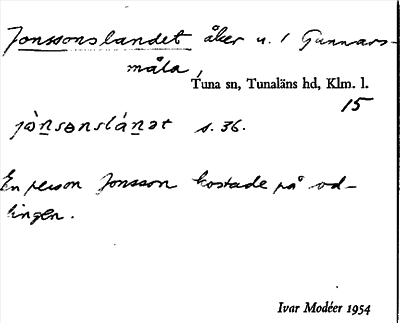 Jonssonslandet åker u. 1 Gunnars-
måla,
Tuna sn, Tunaläns hd, Klm. l.
15
jònsɵnslánət s. 36.
En person Jonsson kostade på od-
lingen.
Ivar Modéer 1954